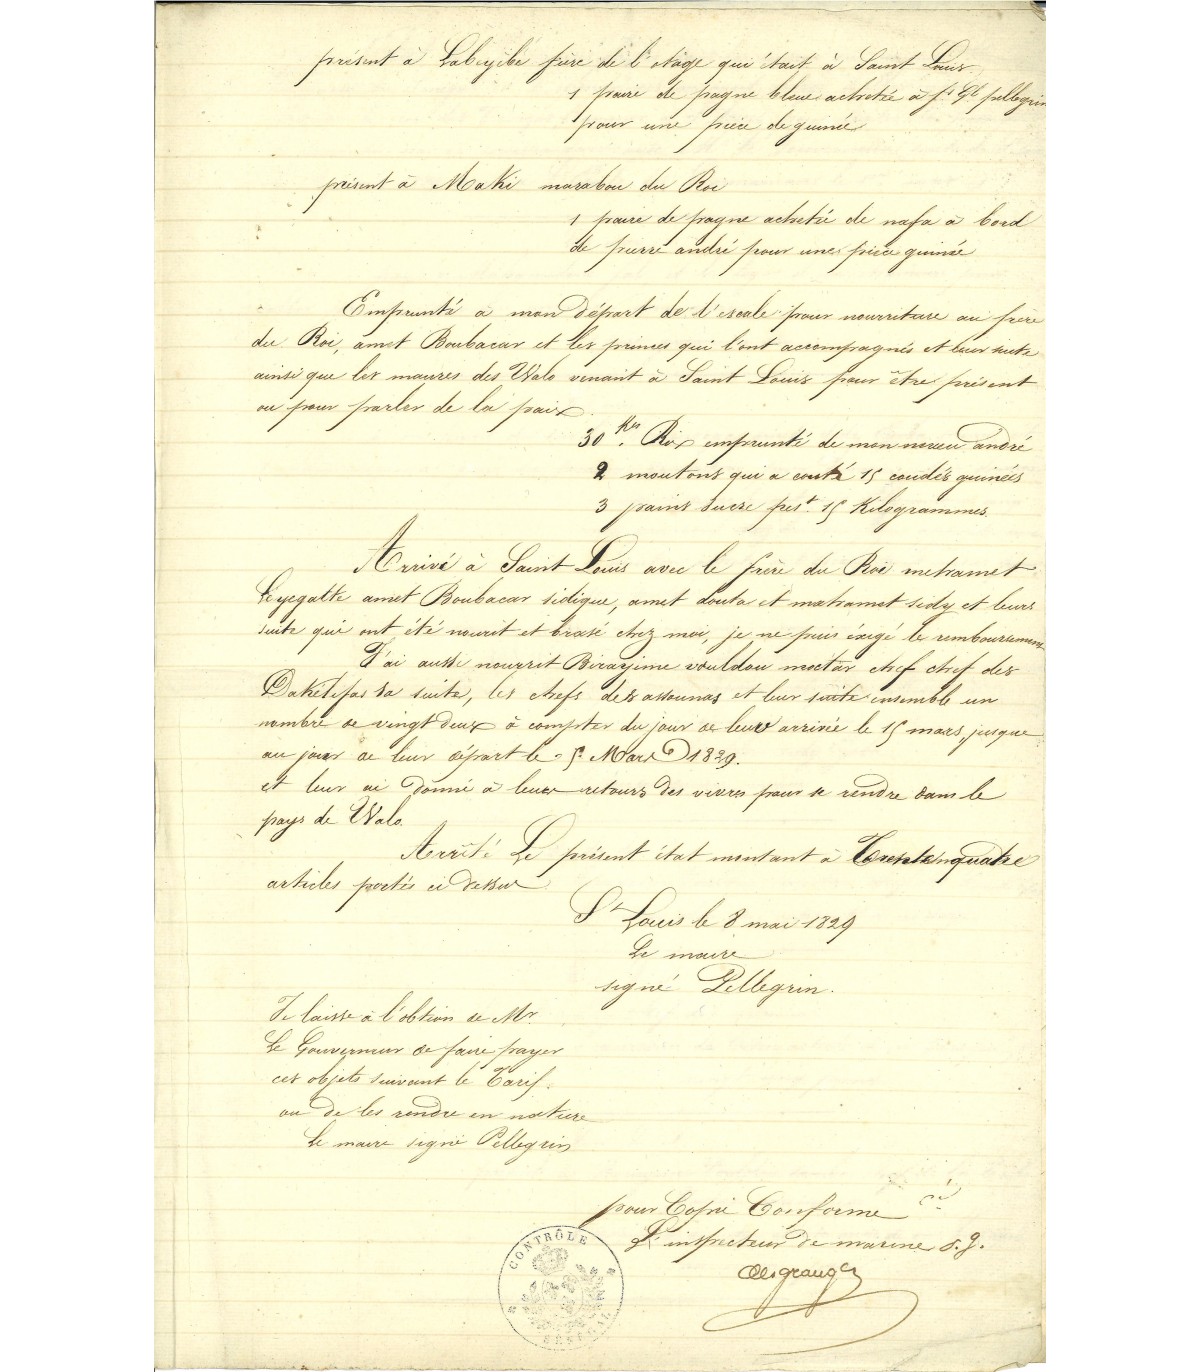 présent à Labeyébé frère de l'otage qui était à Saint Louis
1 paire de pagne bleue achetée à fs. Gl. pellegrin
pour une pièce de guinée
présent à Maki marabou du Roi
1 paire de pagne acheté de nafa à bord
de pierre andré pour une pièce guinée
Emprunté à mon départ de l'escale pour nourriture au frère
du Roi, amet Boubacar et les princes qui l'ont accompagnés et leur suite
ainsi que les maures des Walo venant à Saint Louis pour être présent
ou pour parler de la paix.
30 Kes. Rix emprunté de mon neveu andré
2 moutons qui a couté 15 coudés guinées
3 pains sucre pest. 15 Kilogrammes.
Arrivé à Saint Louis avec le frère du Roi mehamet
Leyegatte amet Boubacar sidique, amet douta et mahamet sidy et leurs
suite qui ont été nourit et brasé chez moi, je ne puis éxigé le remboursement
J'ai aussi nourrit Birayime vouldou moctar chef chef des
Daketifas sa suite, les chefs des assounas et leur suite ensemble un
nombre de vingt deux à compter du jour de leur arrivée le 15 mars jusque
au jour de leur départ le 5 Mars 1829.
et leur ai donné à leur retours des vivres pour se rendre dans le
pays de Walo.
Arrêté Le présent état montant à Trente quatre
articles portés ci dessus
St Louis le 8 mai 1829
Le maire
signé Pellegrin.
Je laisse à l'obtion de Mr.
Le Gouverneur de faire payer
ces objets suivant le Tarif.
ou de les rendre en nature
Le maire signé Pellegrin
pour Copie Conforme
L'inspecteur de marine s.g.
Desgranges
CONTRÔLE
SÉNÉGAL